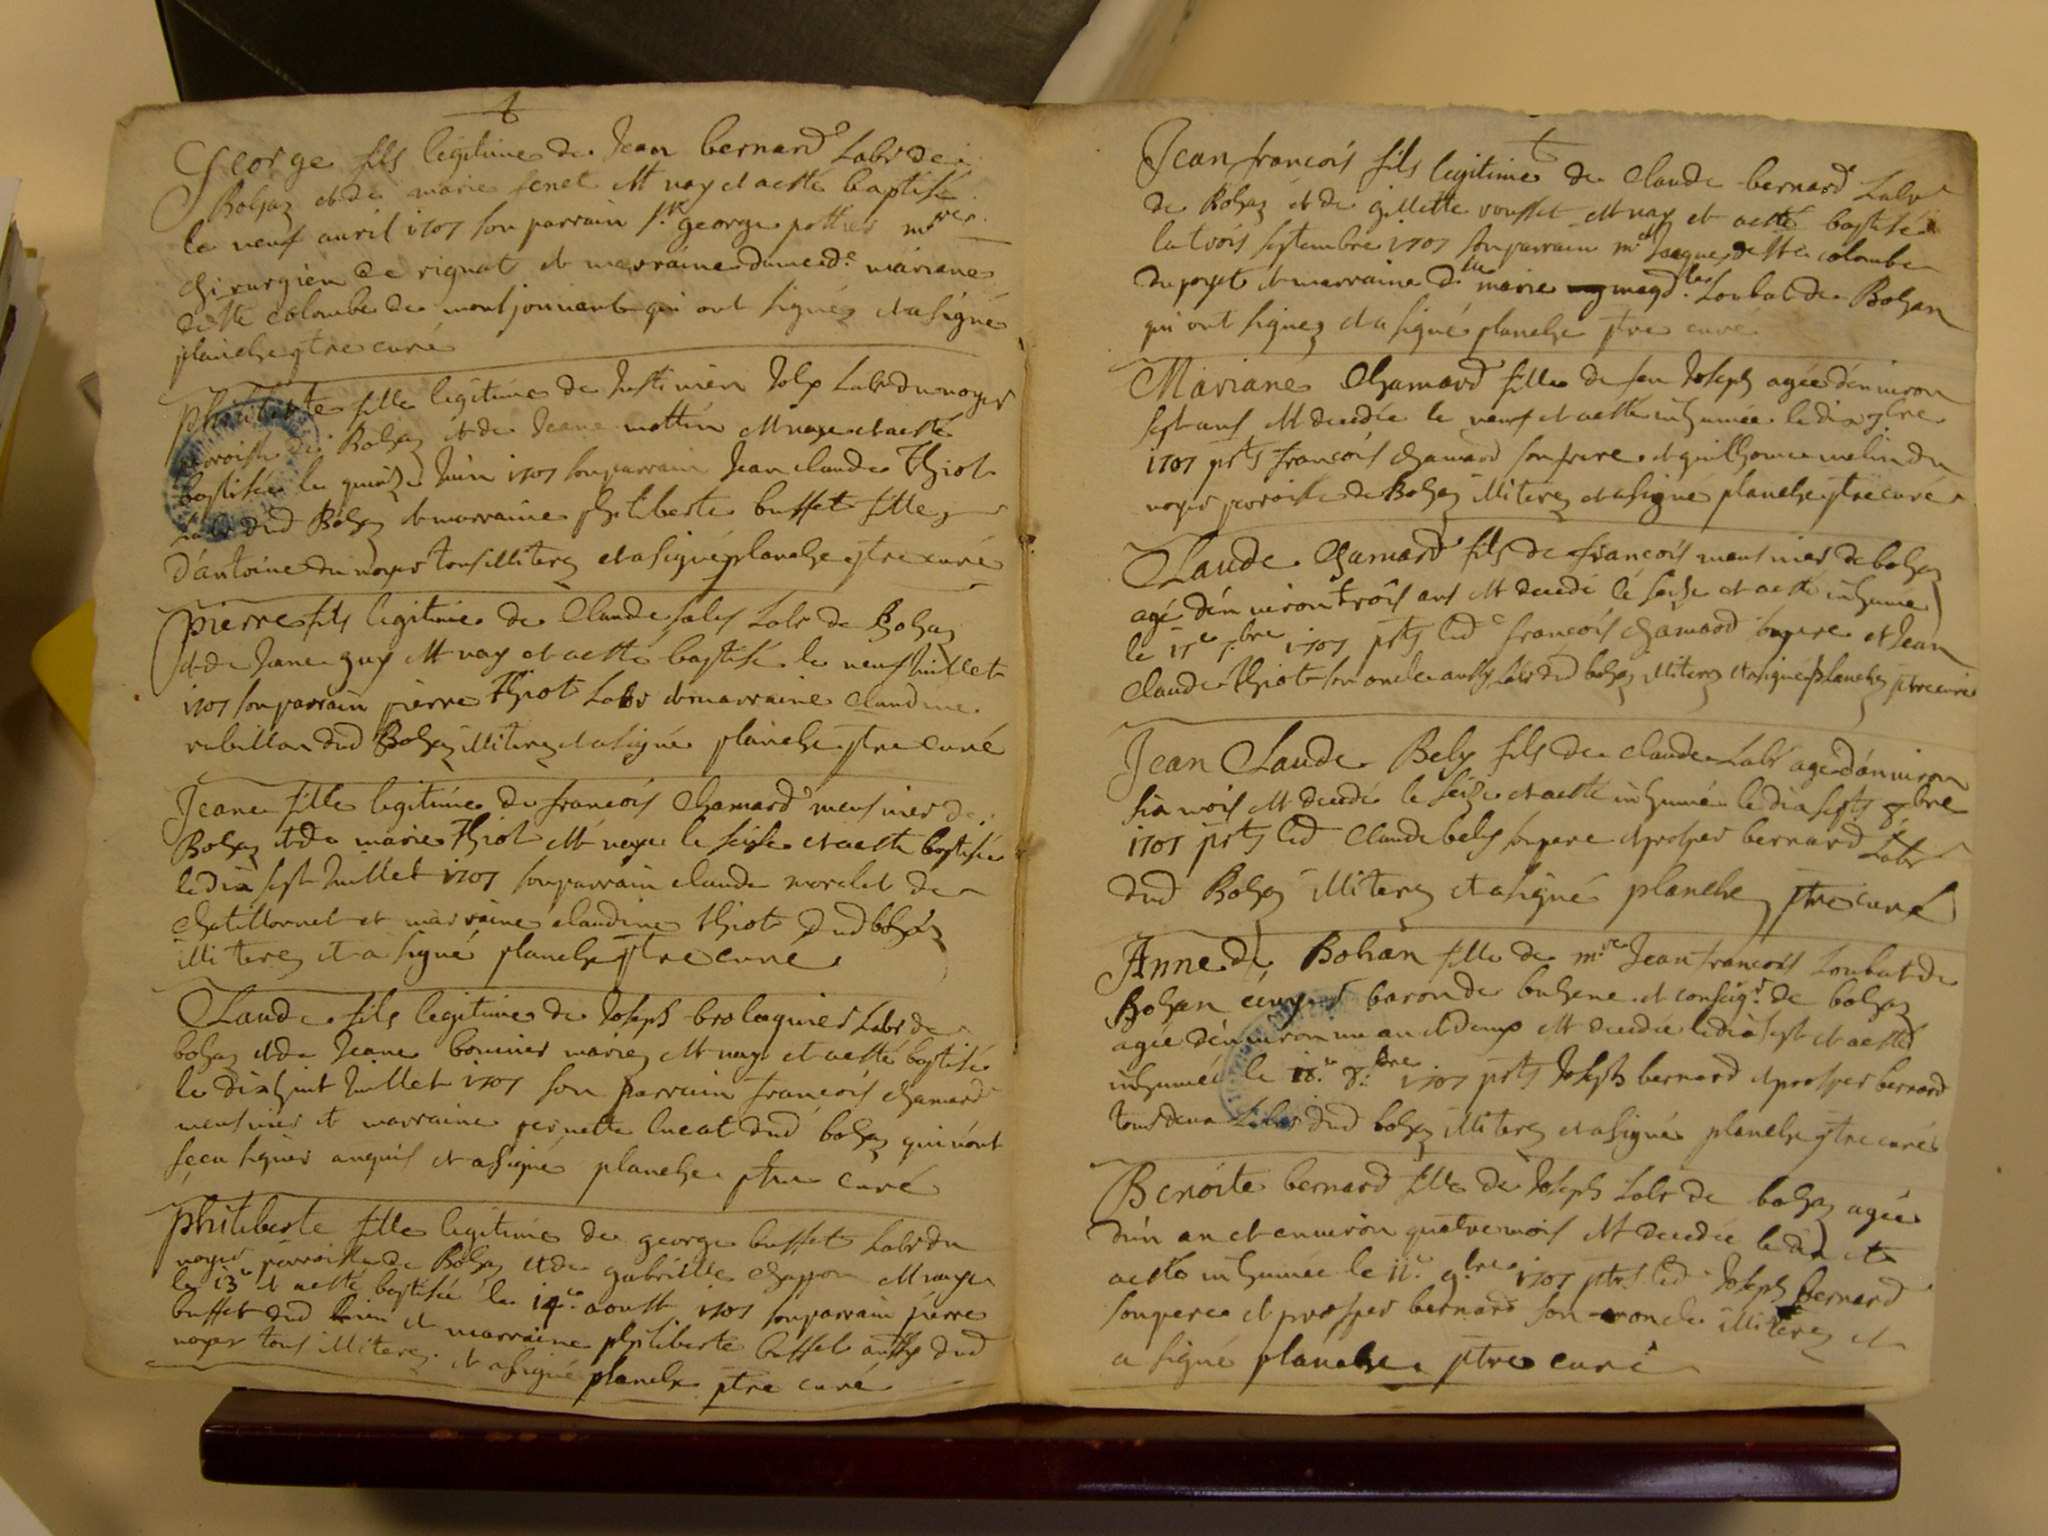 George fils legitime de Jean bernard Labr de
Bohaz et de marie fenet est nay et a esté baptisé
le neuf auril 1707 son parrain sr george pottier mre
chirurgien de rignat et marraine dame de mariane
de ste colombe de montjouuent qui ont signéz et a signé
planche ptre curé
Philiberte fille legitime de Justinien Joly Labr du noyer
parroisse de Bohaz et de Jeane mottin est naye et a esté
baptisée le quinze Juin 1707 son parrain Jean claude Thiot
Labr dud Bohaz et marraine philiberte buffet fille
d'antoine du noyer tous illiterez et a signé planche ptre curé
Pierre fils legitime de Claude Labr de Bohaz
et de Jane guy est nay et a esté baptisé le neuf Juillet
1707 son parrain pierre Thiot Labr et marraine claudine
rebillard dud Bohaz illiterez et a signé planche ptre curé
Jeane fille legitime de francois Chamard meusnier de
Bohaz et de marie Thiot est naye le seise et a esté baptisée
le dix sept Juillet 1707 son parrain claude morelet de
chatillonnet et marraine claudine Thiot dud bohaz
illiterez et a signé planche ptre curé
Claude fils legitime de Joseph broleguier Labr de
bohaz et de Jeane mariez est nay et a esté baptisé
le dixhuit Juillet 1707 son parrain francois chamard
meusnier et marraine pernette lucat dud bohaz qui n'ont
sçeu signer enquis et a signé planche ptre curé
Philiberte fille legitime de george buffet Labr du
noyer parroisse de Bohaz et de gabrielle chappon est naye
le 13e et a esté baptisée le 14e aoust 1707 son parrain pierre
buffet dud lieu et marraine philiberte buffet aussy dud
noyer tous illiterez et a signé planche ptre curé
Jean francois fils legitime de claude bernard Labr
de Bohaz et de gillette rousset est nay et a esté baptisé
le trois septembre 1707 son parrain mre Jaque de ste colombe
du poyet et marraine dlle marie magdne Loubat de Bohan
qui ont signez et a signé planche ptre curé
Mariane Chamard fille de feu Joseph agée d'enuiron
sept ans est decedée le neuf et a esté inhumée le dix 7bre
1707 pnts francois chamard son frere et guillhoume melin du
noyer parroisse de Bohaz illiterez et a signé planche ptre curé
Claude Chamard fils de francois meusnier de bohaz
agé d'enuiron trois ans est decedé le seize et a esté inhumé
le 17e 7bre 1707 pnts led francois chamard son pere et Jean
claude Thiot son oncle aussy Labr dud bohaz illiterez et a signé planche ptre curé
Jean Claude Bely fils de claude Labr agé d'enuiron
six mois est decedé le seize et a esté inhumé le dix sept 8bre
1707 pnts led Claude bely son pere et prosper bernard Labr
dud Bohaz illiterez et a signé planche ptre curé
Anne de Bohan fille de mre Jean francois Loubat de
Bohan écuyer baron de buhene et conseigr de bohaz
agée d'enuiron un an et demy est decedée le dix sept et a esté
inhumée le 18e 8bre 1707 pnts Joseph bernard et prosper bernard
tous deux Labrs dud bohaz illiterez et a signé planche ptre curé
Benoite bernard fille de Joseph Labr de bohaz agée
d'un an et enuiron quatre mois est decedée le dix et a
esté inhumée le 11e 9bre 1707 pnts led Joseph bernard
son pere et prosper bernard son oncle illiterez et
a signé planche ptre curé